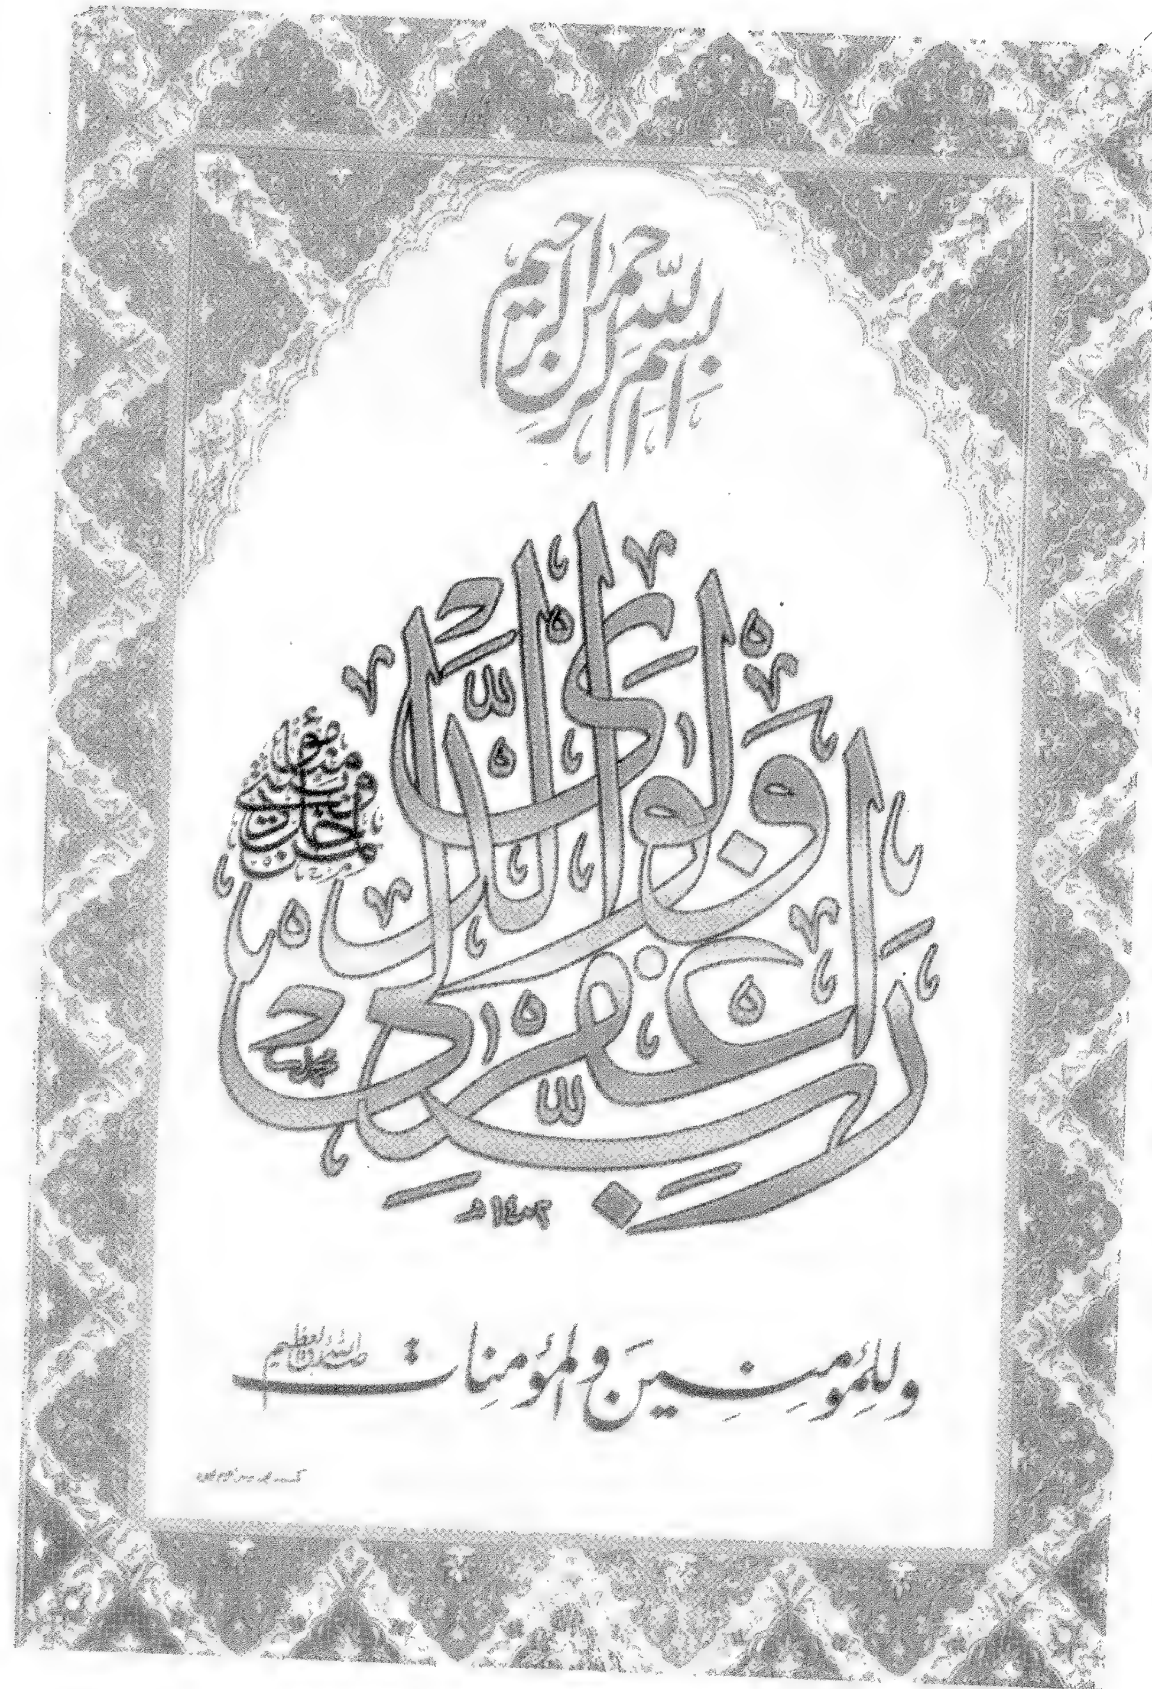 بسم الله الرحمن الرحيم
رَبِّ اغْفِرْ لِي وَلِوَالِدَيَّ
ولمن دخل بيتي مؤمنا
١٤٠٢هـ
وللمؤمنين والمؤمنات
صدق الله العظيم